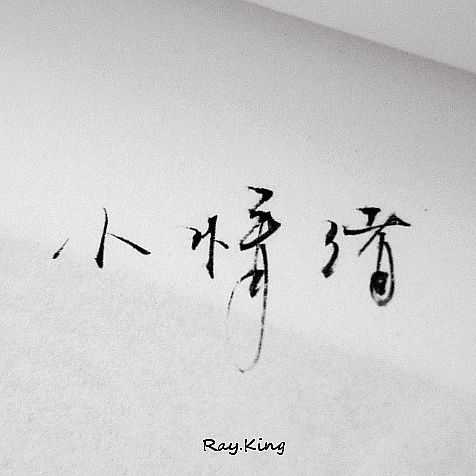 小情绪
Ray.King